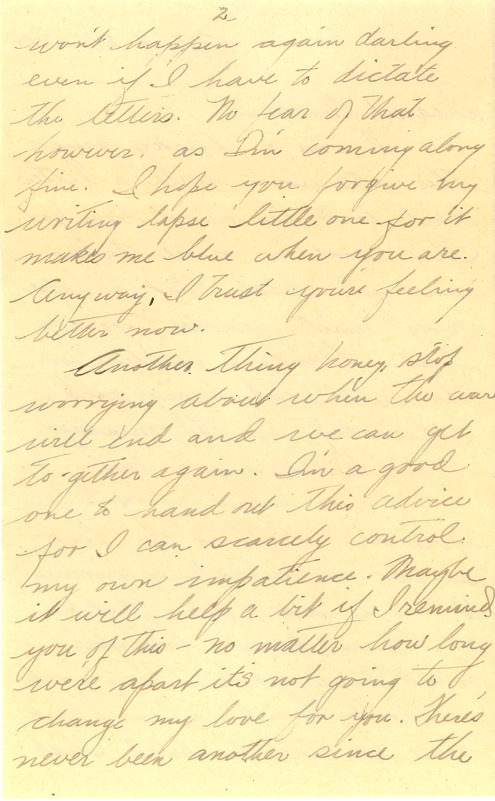 2
won't happen again darling
even if I have to dictate
the letters. No fear of that
however. as I'm coming along
fine. I hope you forgive my
writing lapse little one for it
makes me blue when you are.
Anyway, I trust you're feeling
better now.
Another thing honey, stop
worrying about when the war
will end and we can get
to-gether again. I'm a good
one to hand out this advice
for I can scarcely control
my own impatience. Maybe
it will help a bit if I remind
you of this - no matter how long
we're apart it's not going to
change my love for you. There's
never been another since the